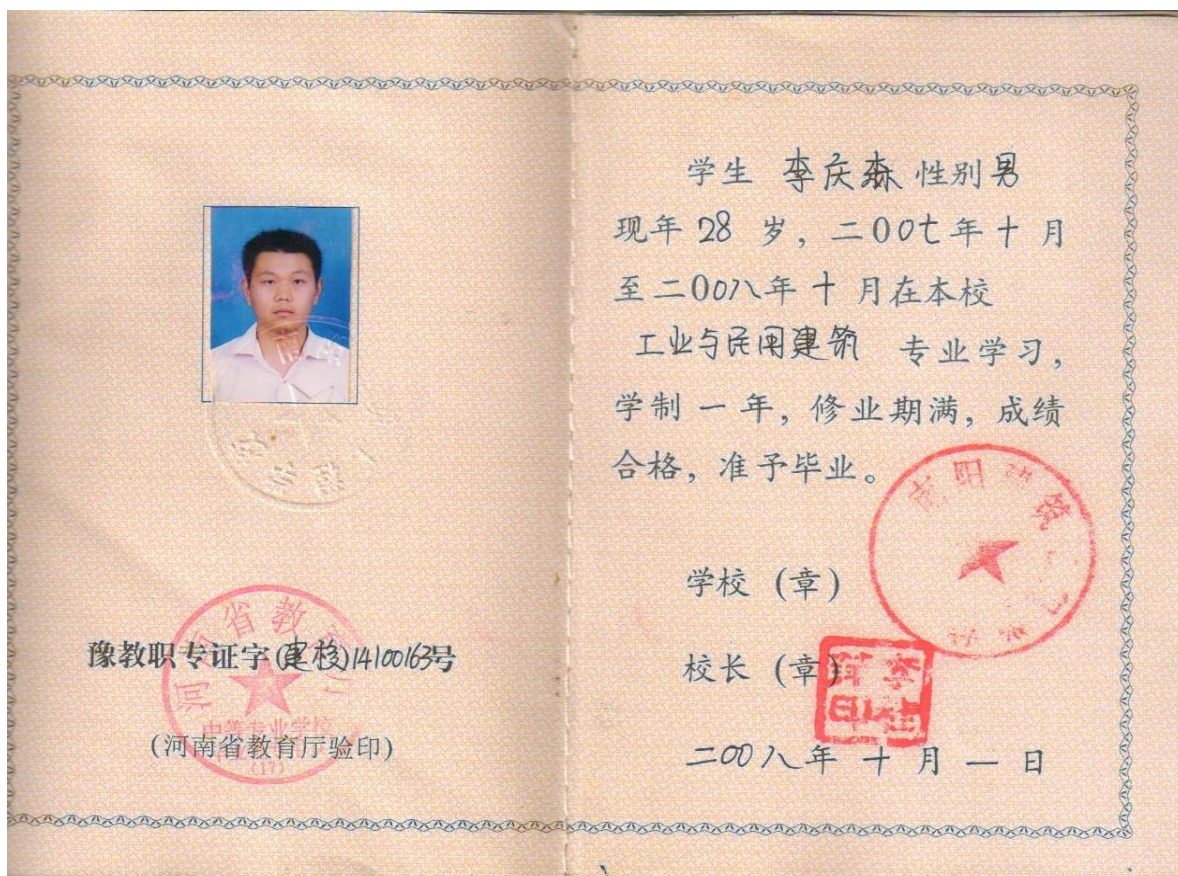 豫教职专证字(建移)14100163号
(河南省教育厅验印)
河南省教育厅
中等专业学校
(17)
学生 李庆森 性别 男
现年 28 岁，二00七年十月
至二00八年十月在本校
工业与民用建筑 专业学习，
学制 一 年，修业期满，成绩
合格，准予毕业。
学校 (章)
校长 (章)
二00八年 十 月 一 日